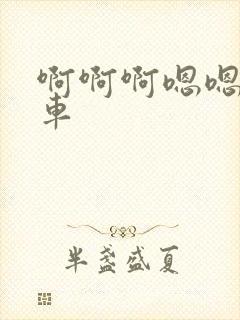 啊啊啊嗯嗯
車
半盏盛夏